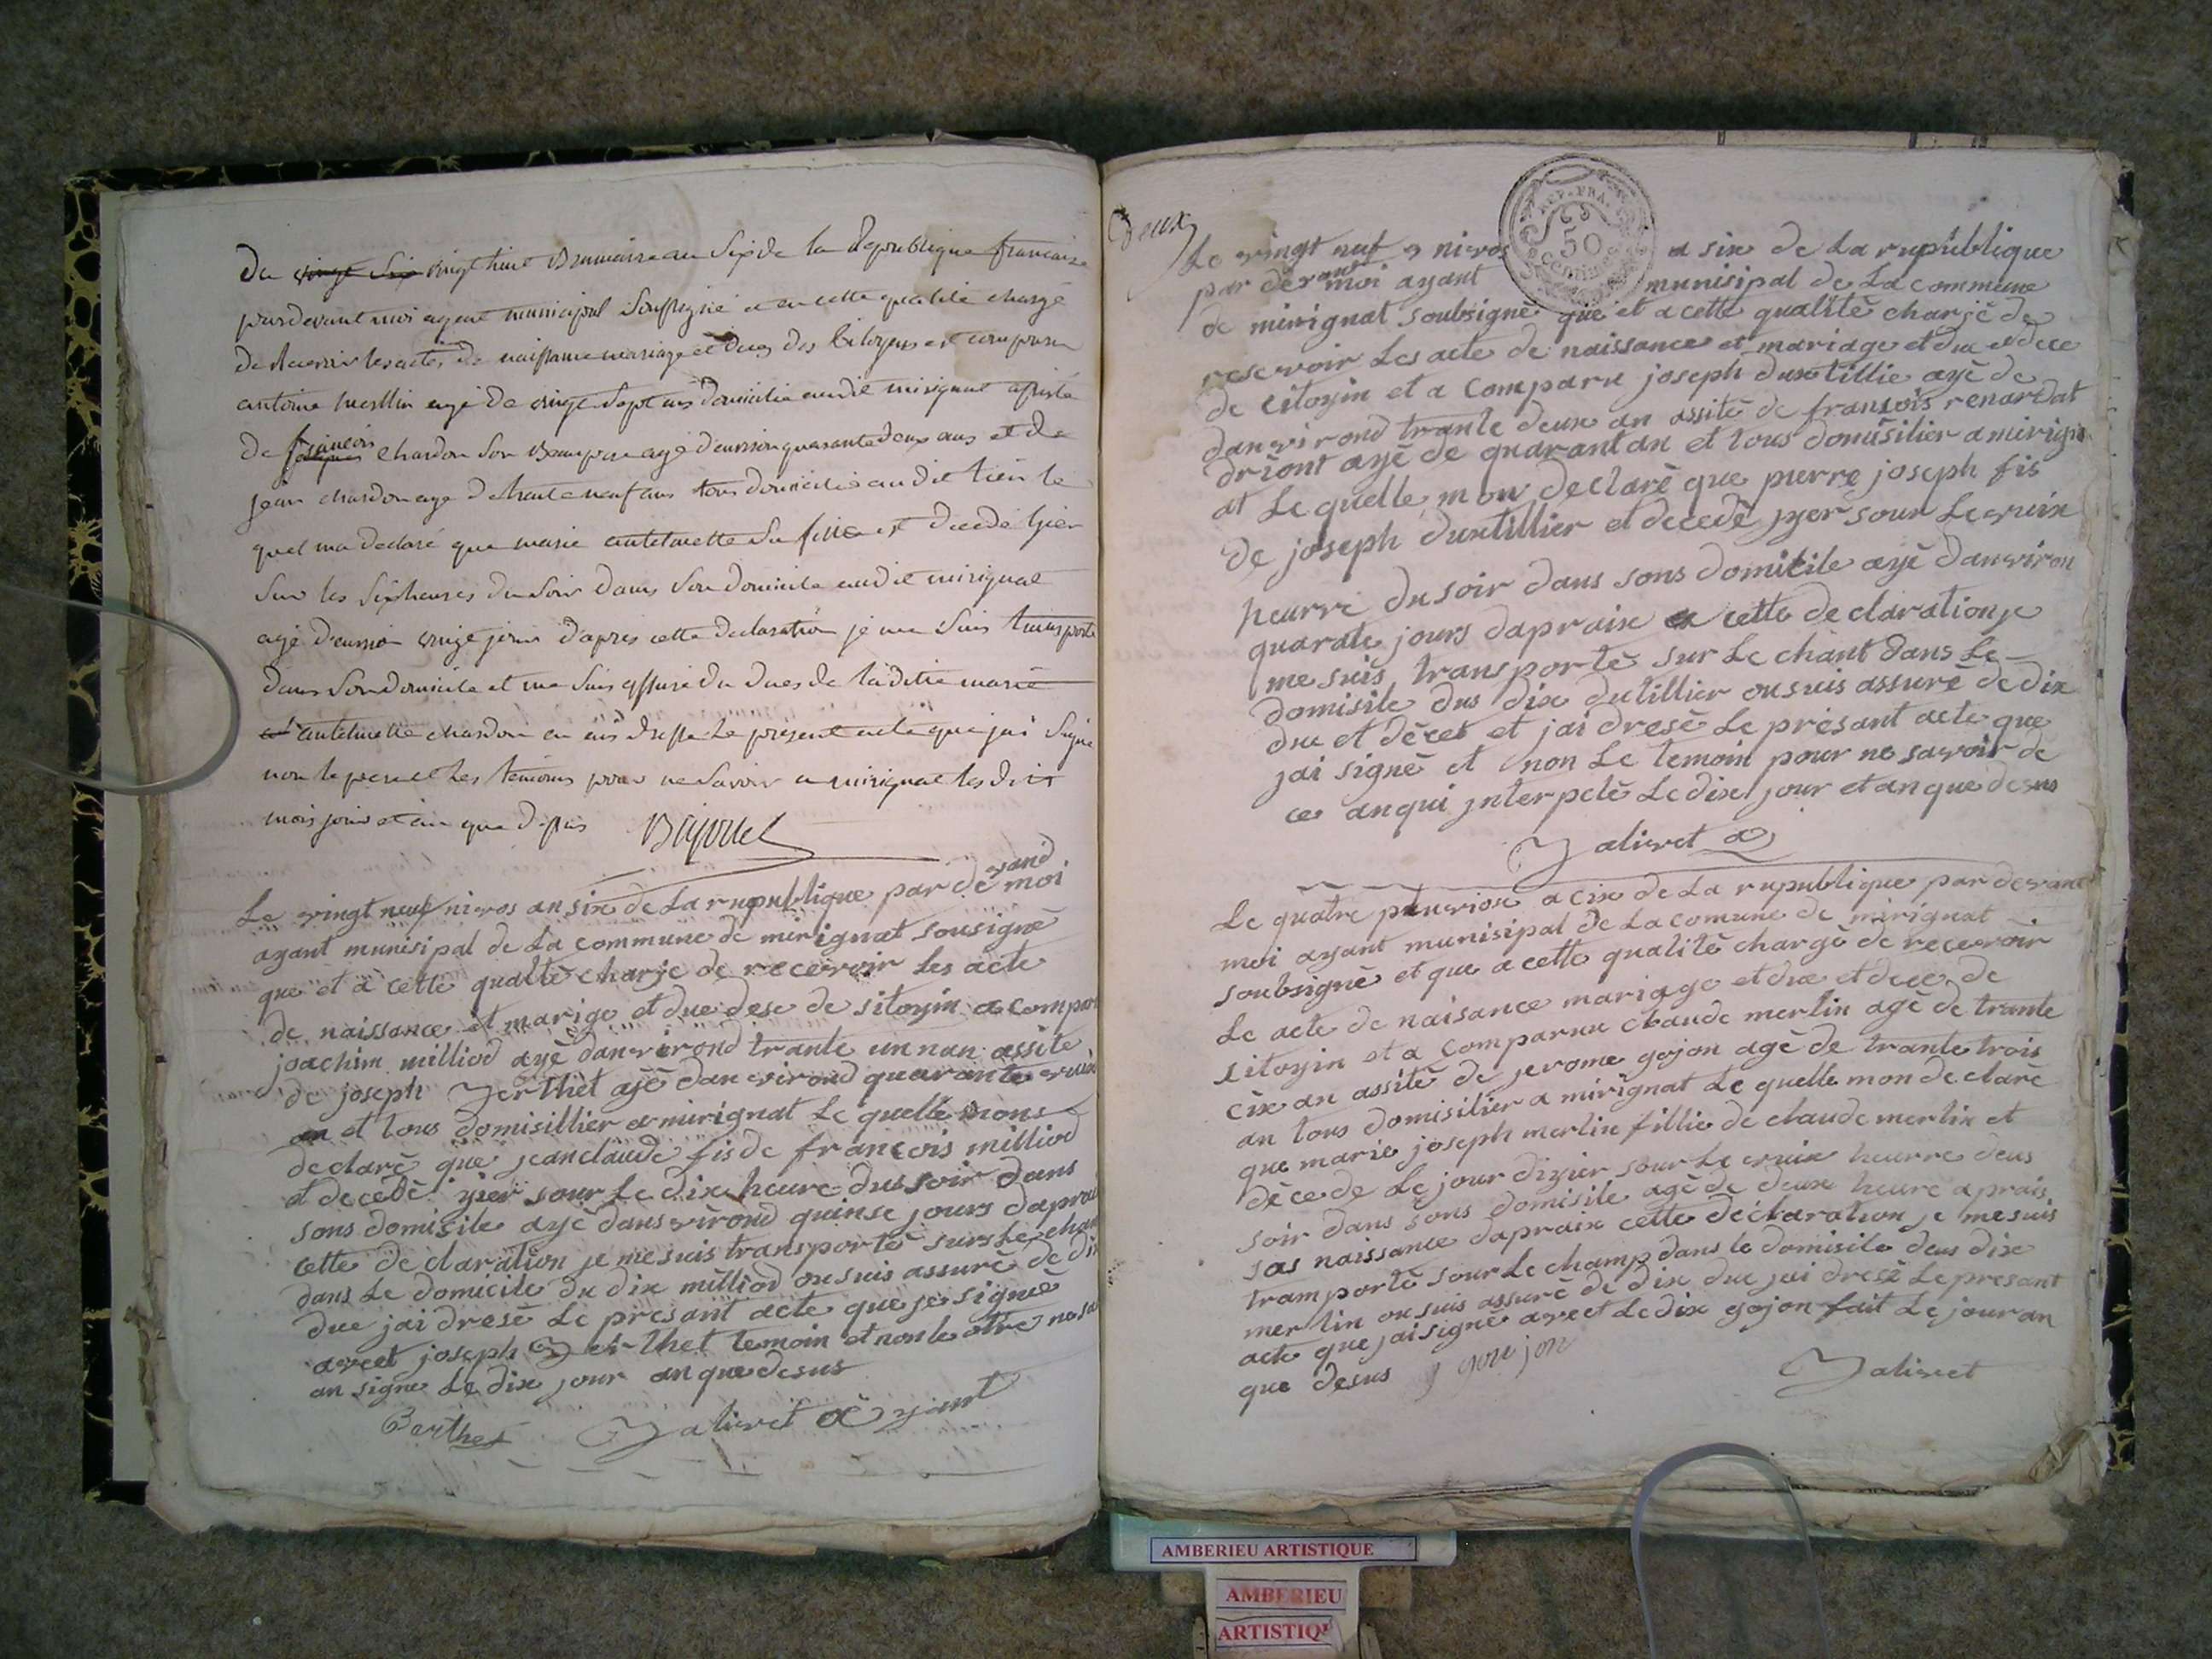 Du vingt Six vingt huit Brumaire an Six de la Republique francaise
pardevant moi agent municipal Soussigné et en cette qualité chargé
de Recevoir les actes de naissance mariage et duces des Citoyens est comparu
antoine merllin agé de vingt Sept ans domicilié audit mirignat assisté
de françois chardon Son Beaupere agé d'environ quarante deux ans et de
jean chardon agé de trante neuf ans tous domiciliés audit lieu le
quel ma declaré que marie antelmette Sa fille est decedé hier
Sur les Six heures du Soir dans Son domicile audit mirignat
agé d'environ vingt jours d'apres cette declaration je me Suis transporté
dans Son domicile et me Suis assuré du duces de laditte marie
antelmette chardon en ais dressé le present acte que jai Signé
non le pere et les temoins pour ne Savoir a mirignat les dits
mois jour et an que dessus
Le vingt neuf nivos an six de La rupublique par de vand moi
ayant munisipal de La commune de mirignat sousigné
que et a cette qualté charje de recevoir Les acte
de naissance et marige et due dese de sitoyin a compar
joachim milliod ayé danvirond trante un nan assite
de joseph Berthet ajé danvirond quarante
an et tous domisillier a mirignat Le quelle mons
declaré que jeanclaude fis de françois milliod
et decedé yier sour Le dix heure dus soir dans
sons domicile ayé dans virond quinse jours daprai
cette declaration je me suis transporté surs Le cham
dans Le domicile du dix milliod ou suis assuré de dix
due jai dresé Le presant acte que je signé
aveet joseph Berthet temoin et non le otre ne sa
an signe Le dix jour an que desus
Berthet Balivet ayant
Deux
REP. FRA.
50
centimes
Le vingt neuf nivos a six de La rupublique
par devant moi ayant munisipal de La commune
de mirignat soubsigné que et a cette qualité charjé de
resevoir Les acte de naissance et mariage et due et dece
de Citoyin et a comparu joseph dustillie ayé de
danvirond trante deux an assité de fransois renardat
driont ayé de quarant an et tous domisilier a mirign
at Le quelle mon declaré que pierre joseph fis
de joseph dustillier et decedé yer sour Le vuix
heurre du soir dans sons domicile ayé danviron
quarate jours dapraix cette declaration je
me suis transporté sur Le chant dans Le
domisile dus dix dutillier ou suis assuré de dix
due et décet et jai dresé Le présant acte que
jai signé et non Le temoin pour ne savoir de
ce anqui interpelé Le dix jour et an que desus
Balivet
Le quatre pluviox a cix de La rupublique par devant
moi ayant munisipal de La comune de mirignat
soubsigné et que a cette qualité chargé de recevoir
Le acte de naisance mariage et due et dece de
citoyin et a comparnu claude merlin agé de trante
cix an assité de jerome gojon agé de trante trois
an tous domisilier a mirignat Le quelle mon declaré
que marie joseph merlin fillie de claude merlin et
décede Le jour diyier sour Le vuix heurre deus
soir dans sons domisile agé de deux heure aprais
sas naissance dapraix cette declaration je me suis
tramporté sour Le champ dans le domisile deus dix
merlin ou suis assuré de dix due jai dresé Le presant
acte que jai signé aveet Le dix gojon fait Le jour an
que desus j goujon
Balivet
AMBERIEU ARTISTIQUE
AMBERIEU
ARTISTIQU